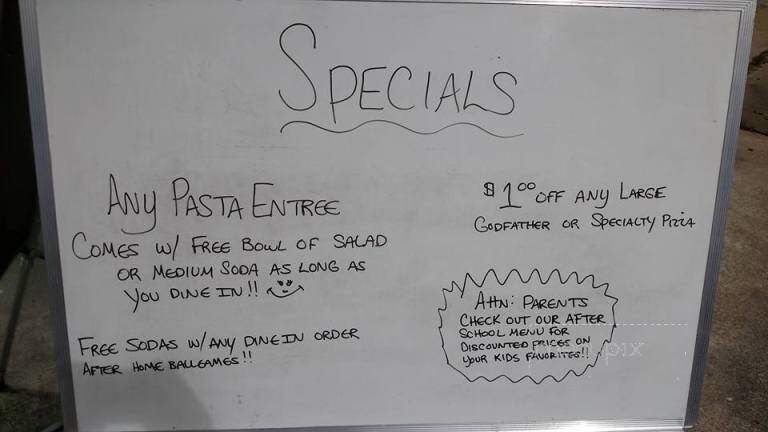 SPECIALS
ANY PASTA ENTREE
COMES W/ FREE BOWL OF SALAD
OR MEDIUM SODA AS LONG AS
YOU DINE IN!!
FREE SODAS W/ANY DINE IN ORDER
AFTER HOME BALLGAMES!!
$1.00 OFF ANY LARGE
GODFATHER OR SPECIALTY PIZZA
ATTN: PARENTS
CHECK OUT OUR AFTER
SCHOOL MENU FOR
DISCOUNTED PRICES ON
YOUR KIDS FAVORITES!!